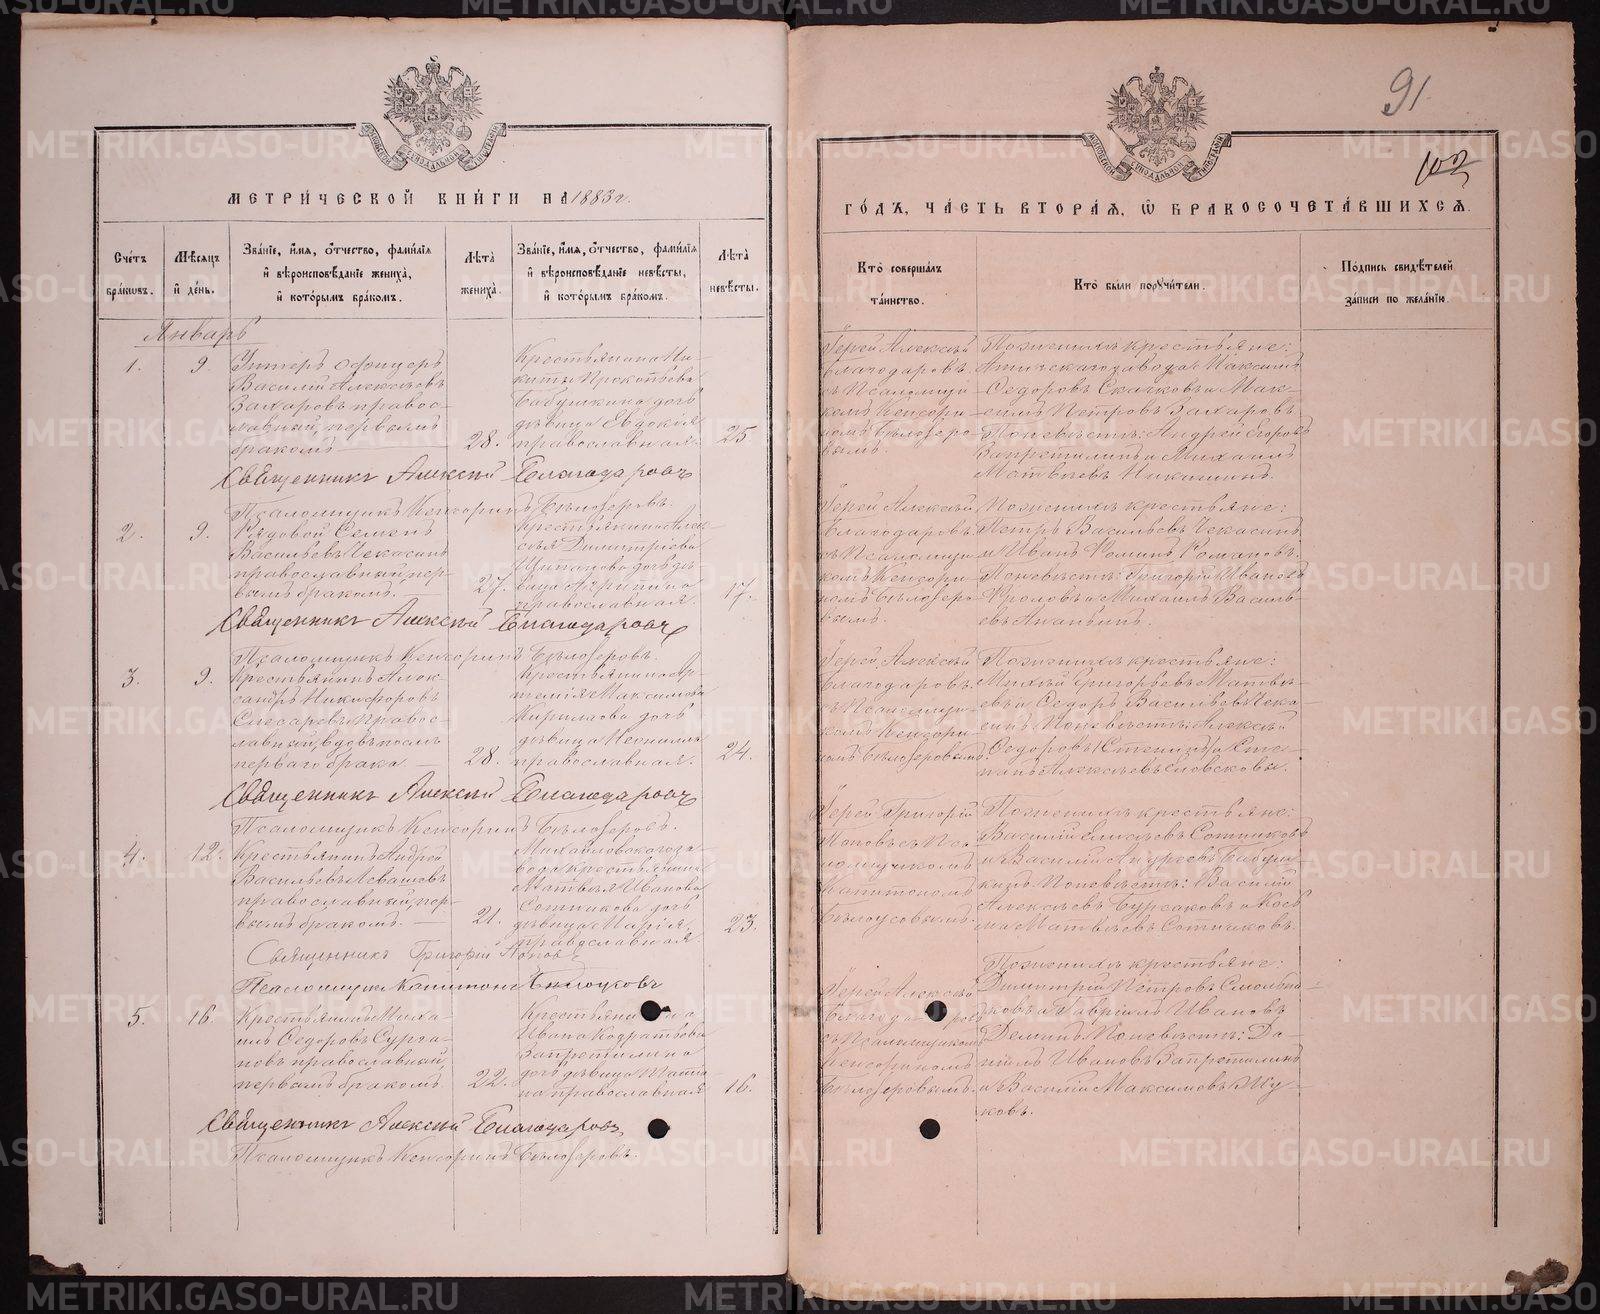 МЕТРИ́ЧЕСКОЙ КНИ́ГИ НА 1883 г.
Сче́тъ бра́кωвъ.
Мѣ́сяцъ и҆ де́нь.
Зва́нїе, и҆́мя, ѻ҆́тчество, фами́лїя и҆ вѣроисповѣ́данїе жениха̀, и҆ кото́рымъ бра́комъ.
Лѣ́та жениха̀.
Зва́нїе, и҆́мя, ѻ҆́тчество, фами́лїя и҆ вѣроисповѣ́данїе невѣ́сты, и҆ кото́рымъ бра́комъ.
Лѣ́та невѣ́сты.
Январь
1.
9.
Унтеръ Офицеръ
Василій Алексѣевъ
Захаровъ правос-
лавный, первымъ
бракомъ
28.
Крестьянина Ни-
киты Прокопьева
Бабушкина дочь
дѣвица Евдокія
православная.
25
Священникъ Алексѣй Благодаровъ
Псаломщикъ Кенсоринъ Бѣлозеровъ.
2.
9.
Рядовой Семенъ
Васильевъ Чекасинъ
православный, пер-
вымъ бракомъ.
27.
Крестьянина Алек-
сѣя Димитріева
дочь дѣ-
вица
православная.
17.
Священникъ Алексѣй Благодаровъ
Псаломщикъ Кенсоринъ Бѣлозеровъ.
3.
9.
Крестьянинъ Алек-
сандръ Никифоровъ
Слесаревъ правос-
лавный, вдовъ послѣ
перваго брака
28.
Крестьянина Ар-
темія Максимова
Кирилова дочь
дѣвица
православная.
24.
Священникъ Алексѣй Благодаровъ
Псаломщикъ Кенсоринъ Бѣлозеровъ.
4.
12.
Крестьянинъ Андрей
Васильевъ
православный, пер-
вымъ бракомъ.
21.
Михайловскаго за-
вода крестьянина
Матвѣя Иванова
Сотникова дочь
дѣвица Марія,
православная.
23.
Священникъ Григорій Поповъ
Псаломщикъ Капитонъ
5.
16.
Крестьянинъ Миха-
илъ Ѳедоровъ Сурга-
новъ православный,
первымъ бракомъ
22.
Крестьянина
Ивана Кодратьева
Запретилина
дочь дѣвица Татья-
на православная
16.
Священникъ Алексѣй Благодаровъ
Псаломщикъ Кенсоринъ Бѣлозеровъ.
91
102
ГО́ДЪ, ЧА́СТЬ ВТОРА́Я, Ѡ҆ БРАКОСОЧЕТА́ВШИХСЯ.
Кто̀ соверша́лъ та́инство.
Кто̀ бы́ли порꙋчи́тели.
По́дпись свидѣ́телей за́писи по жела́нїю.
Іерей Алексѣй
Благодаровъ
съ Псаломщи-
комъ Кенсори-
номъ Бѣлозеро-
вымъ.
По женихѣ крестьяне:
завода Максимъ
Ѳедоровъ Скачковъ и Мак-
симъ Петровъ Захаровъ
По невѣстѣ: Андрей Егоровъ
Запретилинъ и Михаилъ
Матвѣевъ
Іерей Алексѣй
Благодаровъ
съ Псаломщи-
комъ Кенсори-
номъ Бѣлозеро-
вымъ.
По женихѣ крестьяне:
Петръ Васильевъ Чекасинъ
и Иванъ Романовъ.
По невѣстѣ: Григорій Ивановъ
Фроловъ и Михаилъ Василь-
евъ Ананьинъ.
Іерей Алексѣй
Благодаровъ
съ Псаломщи-
комъ Кенсори-
номъ Бѣлозеровымъ.
По женихѣ крестьяне:
Григорьевъ Матвѣ-
евъ и Ѳедоръ Васильевъ Чека-
синъ. По невѣстѣ: Алексѣй
Ѳедоровъ и Сте-
панъ Алексѣевъ
Іерей Григорій
Поповъ съ Пса-
ломщикомъ
Капитономъ
Бѣлоусовымъ.
По женихѣ крестьяне:
Василій Елисѣевъ Сотниковъ
и Василій Андреевъ Бабуш-
кинъ. По невѣстѣ: Василій
Алексѣевъ Бурсаковъ и Козь-
ма Матвѣевъ Сотниковъ.
Іерей Алексѣй
съ Псаломщикомъ
Кенсориномъ
Бѣлозеровымъ.
По женихѣ крестьяне:
Димитрій Петровъ
и Гавріилъ Ивановъ
Деминъ. По невѣстѣ: Да-
ніилъ Ивановъ Запретилинъ
и Василій Максимовъ Жу-
ковъ.
METRIKI.GASO-URAL.RU